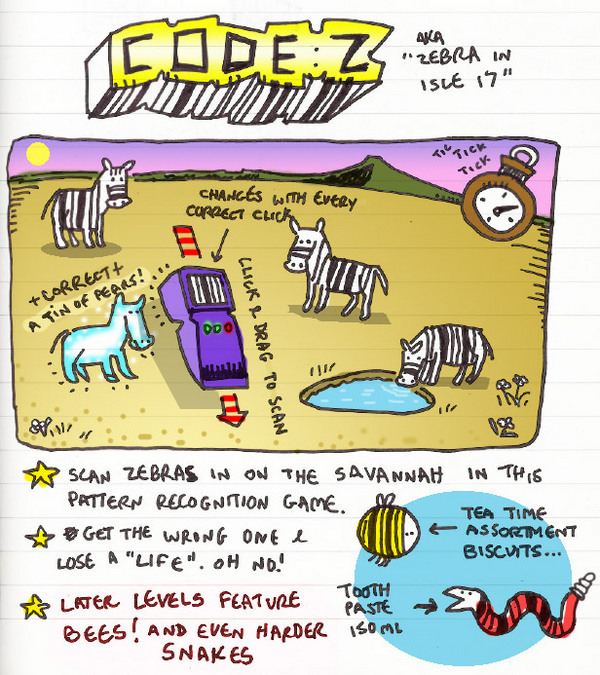 CODE:Z
AKA
"ZEBRA IN
ISLE 17"
TIC TICK
TICK
CHANGES WITH EVERY
CORRECT CLICK
+CORRECT+
A TIN OF PEARS!
CLICK & DRAG TO SCAN
SCAN ZEBRAS IN ON THE SAVANNAH IN THIS
PATTERN RECOGNITION GAME.
GET THE WRONG ONE &
LOSE A "LIFE". OH NO!
LATER LEVELS FEATURE
BEES! AND EVEN HARDER
SNAKES
TEA TIME
ASSORTMENT
BISCUITS...
TOOTH
PASTE
150ML